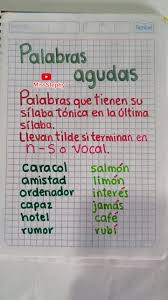 Palabras
agudas
Palabras que tienen su
sílaba tónica en la última
sílaba.
Llevan tilde si terminan en
n - s o vocal.
caracol salmón
amistad limón
ordenador interés
capaz jamás
hotel café
rumor rubí